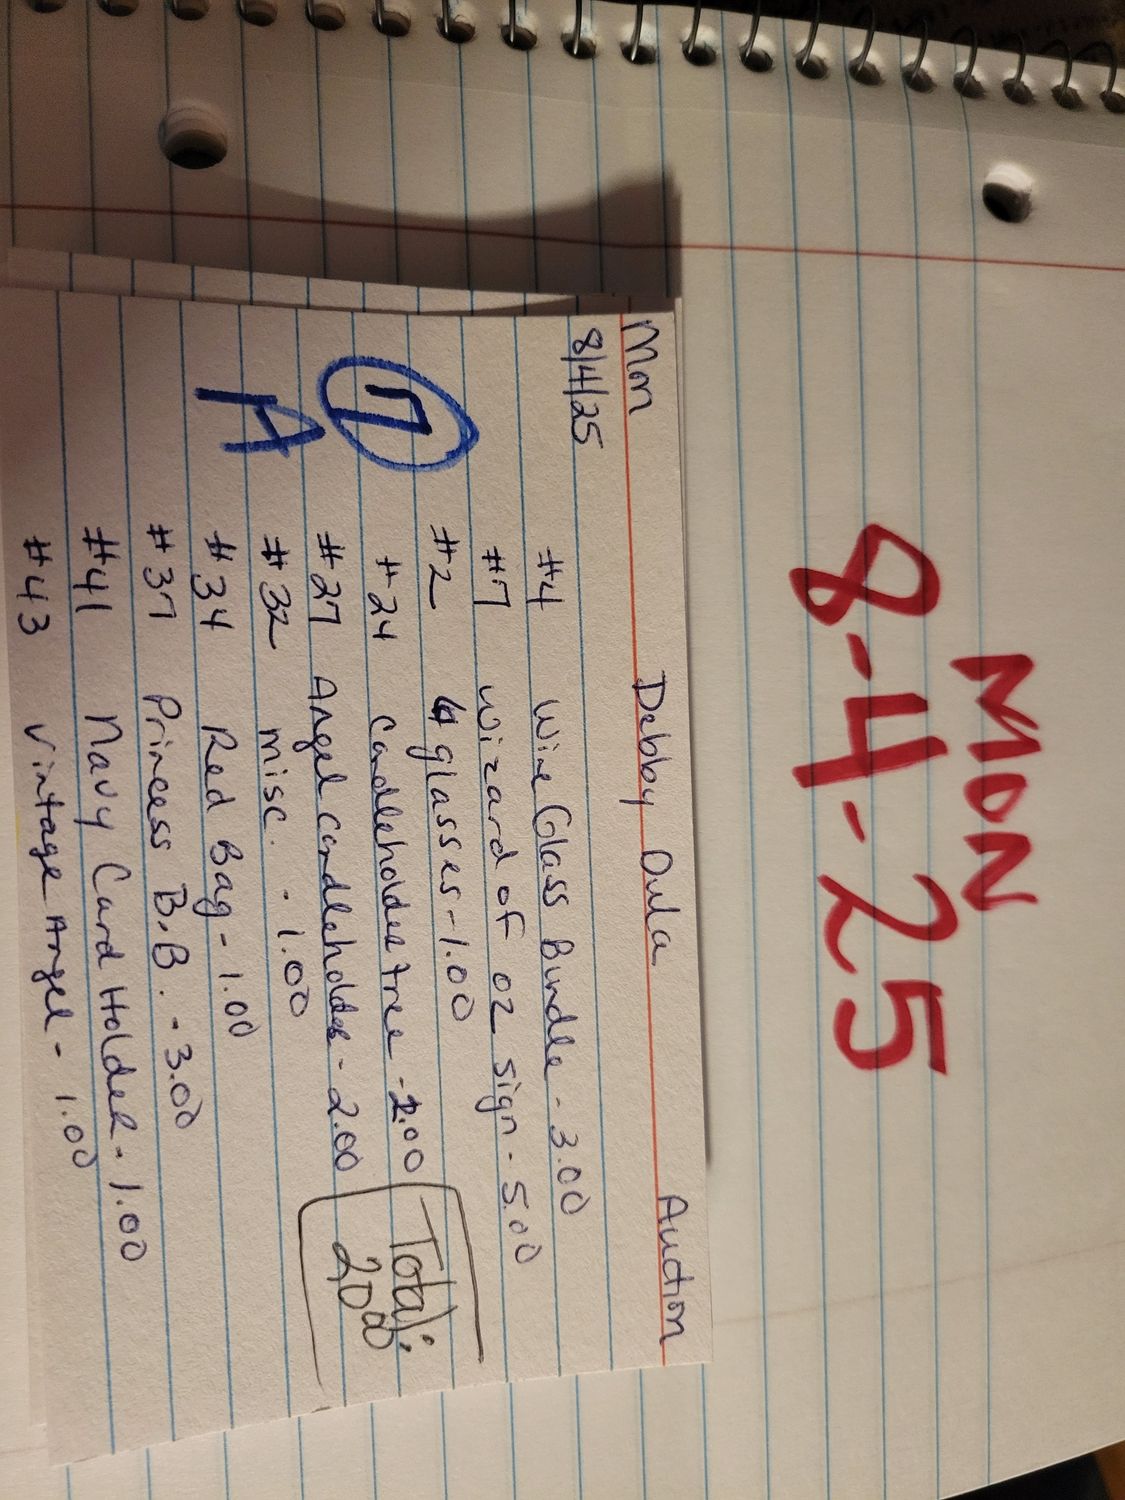 MON
8-4-25
Mon Debby Dula Auction
8/4/25
#4 Wine Glass Bundle - 3.00
#7 Wizard of oz sign - 5.00
#2 4 glasses - 1.00
#24 Candleholder tree - 2.00
#27 Angel candleholder - 2.00
#32 misc. - 1.00
#34 Red Bag - 1.00
#37 Princess B.B. - 3.00
#41 Navy Card Holder - 1.00
#43 Vintage Angel - 1.00
7
A
Total:
2000